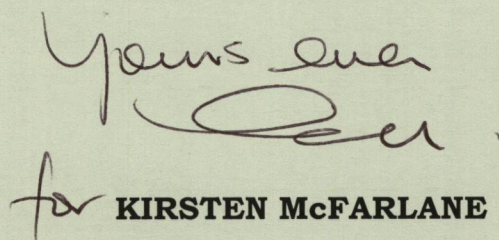 Yours ever
for KIRSTEN McFARLANE